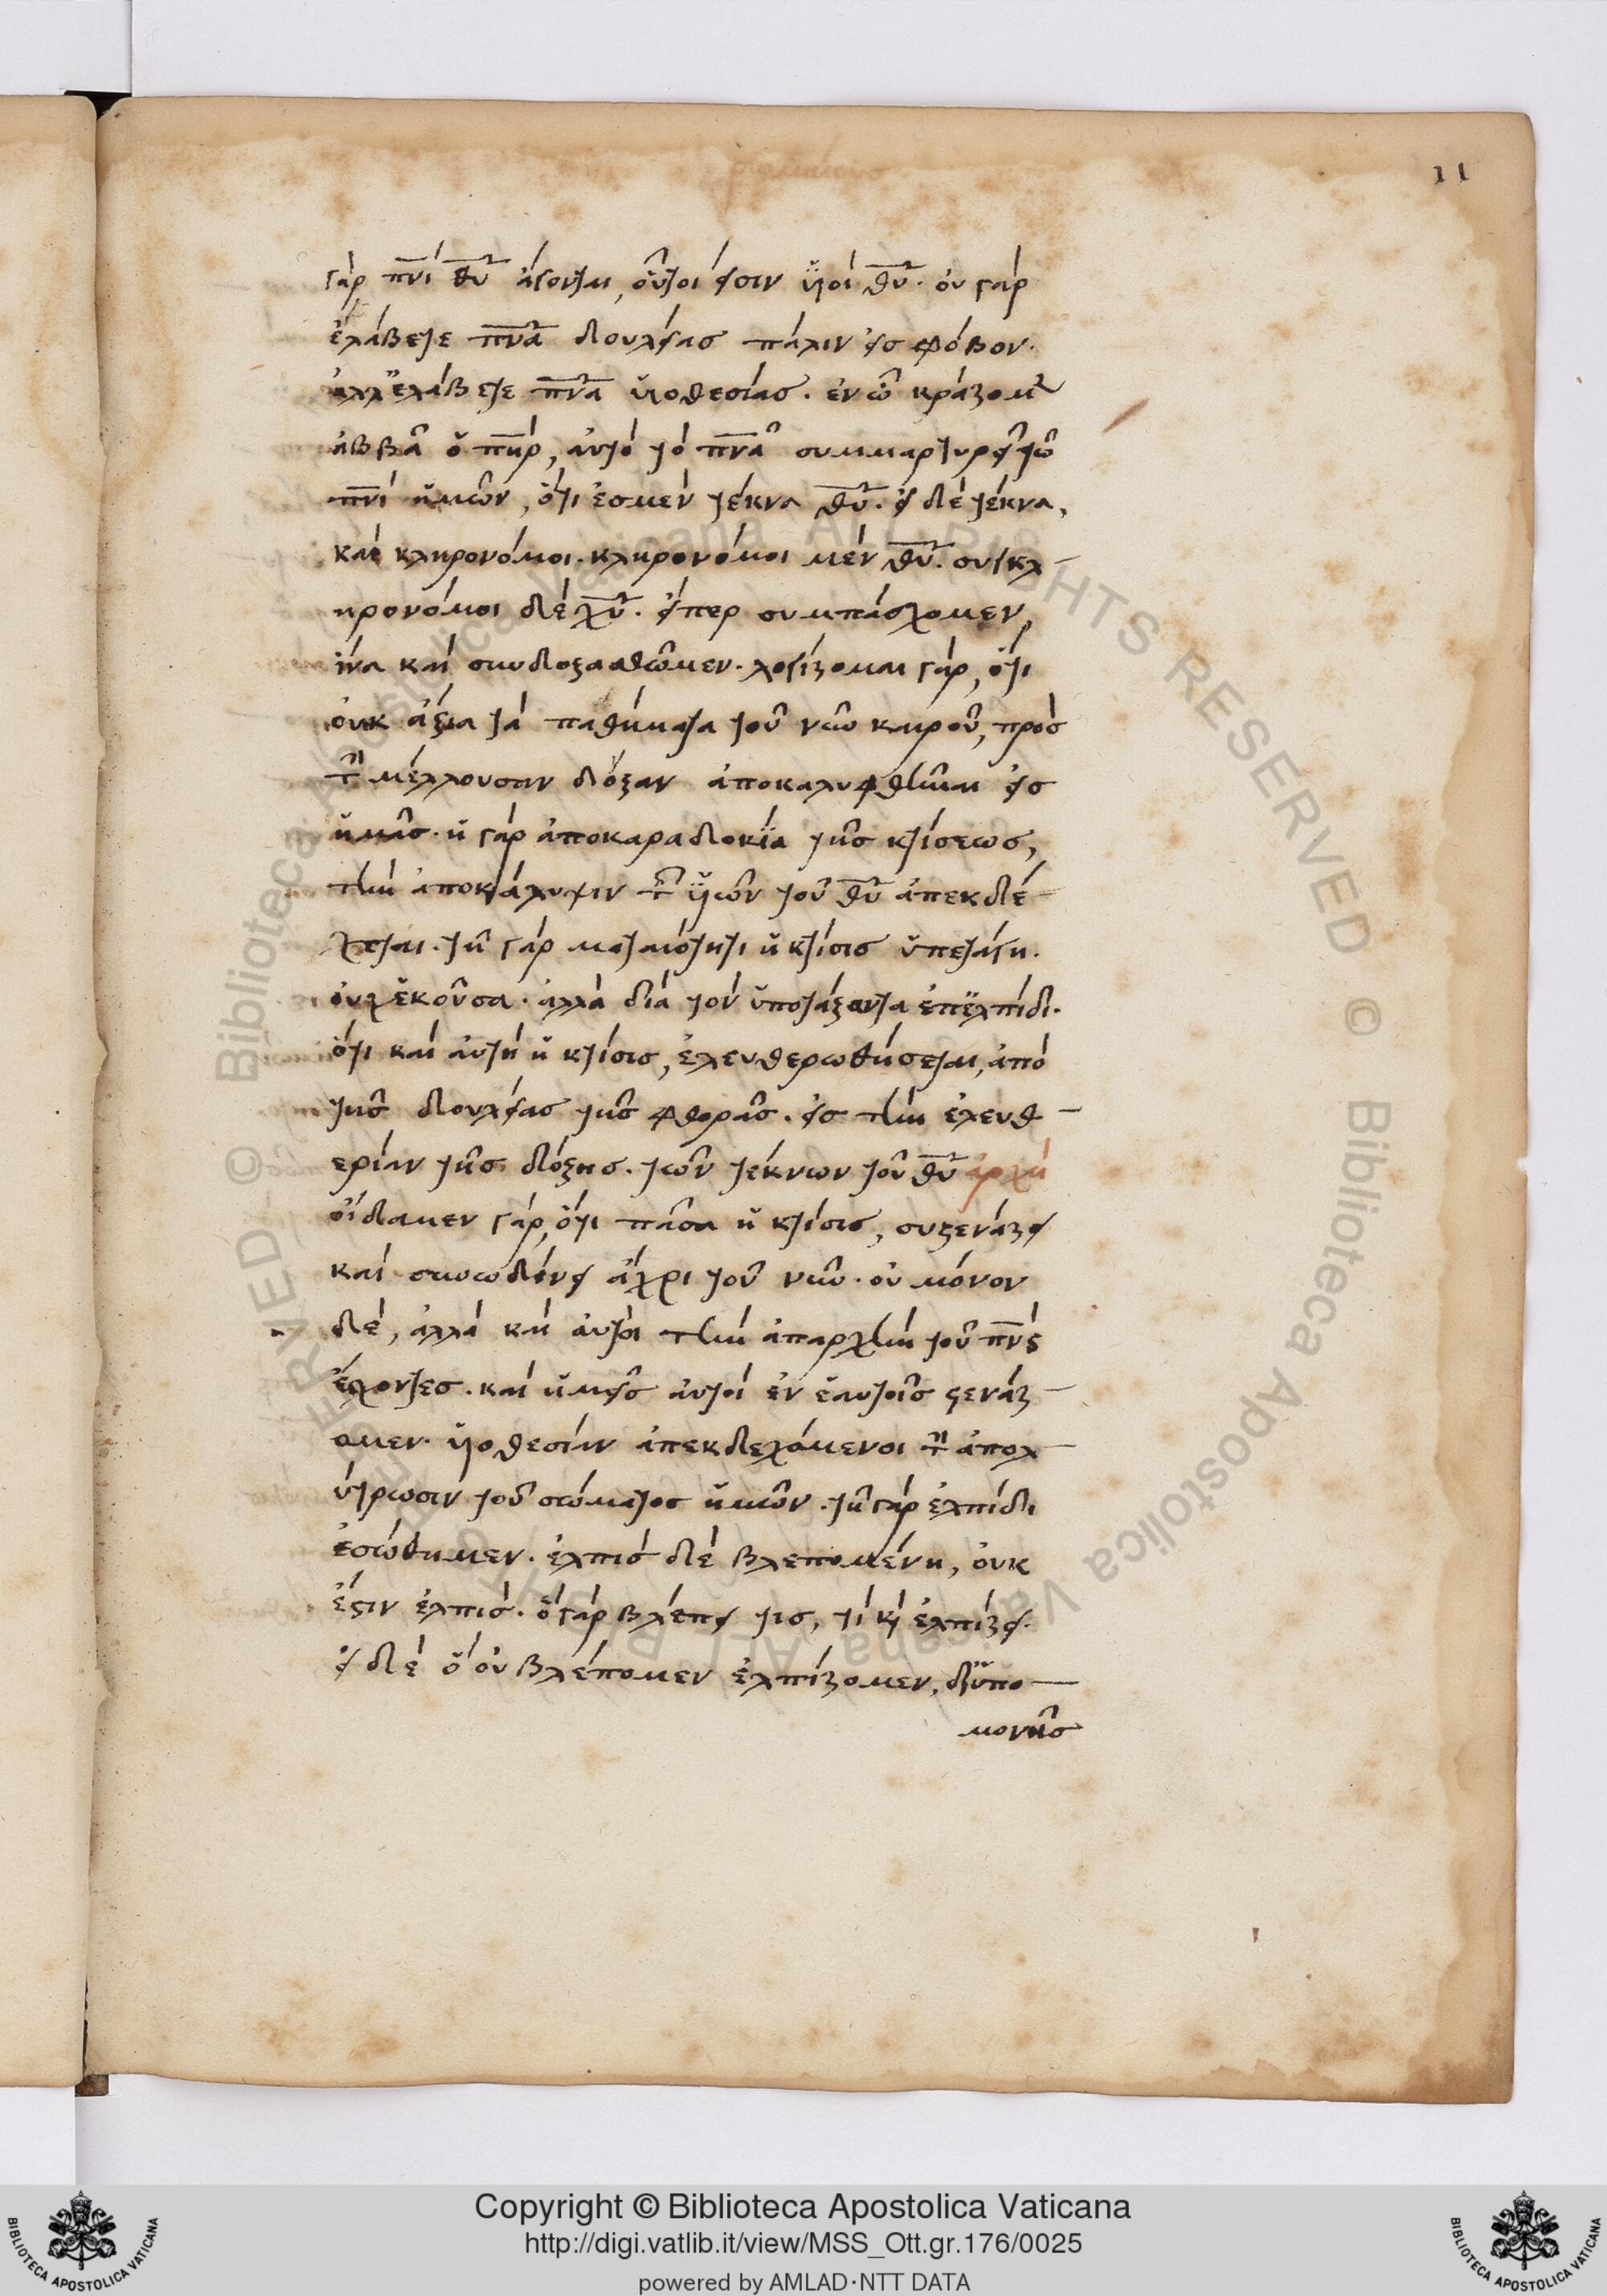 11
γὰρ π̅ν̅ι̅ θ̅υ̅ ἄγονται, οὗτοι εἰσὶν υἱοὶ θ̅υ̅. οὐ γὰρ
ἐλάβετε π̅ν̅α̅ δουλείας πάλιν εἰς φόβον.
ἀλλ' ἐλάβετε π̅ν̅α̅ υἱοθεσίας. ἐν ὧ κράζομ
ἀββᾶ ὁ π̅η̅ρ̅, αὐτὸ τὸ π̅ν̅α̅ συμμαρτυρεῖ τῶ
π̅ν̅ι̅ ἡμῶν, ὅτι ἐσμὲν τέκνα θ̅υ̅. εἰ δὲ τέκνα,
καὶ κληρονόμοι. κληρονόμοι μὲν θ̅υ̅. συγκλ
ηρονόμοι δὲ χ̅υ̅. εἴπερ συμπάσχομεν,
ἵνα καὶ συνδοξασθῶμεν. λογίζομαι γὰρ, ὅτι
οὐκ ἄξια τὰ παθήματα τοῦ νῦν καιροῦ, πρὸς
τὴν μέλλουσαν δόξαν ἀποκαλυφθῆναι εἰς
ἡμᾶς. ἡ γὰρ ἀποκαραδοκία τῆς κτίσεως,
τὴν ἀποκάλυψιν τῶν υἱῶν τοῦ θ̅υ̅ ἀπεκδέ
χεται. τῆ γὰρ ματαιότητι ἡ κτίσις ὑπετάγη.
οὐχ ἑκοῦσα. ἀλλὰ διὰ τὸν ὑποτάξαντα ἐπ' ἐλπίδι.
ὅτι καὶ αὐτὴ ἡ κτίσις, ἐλευθερωθήσεται, ἀπὸ
τῆς δουλείας τῆς φθορᾶς. εἰς τὴν ἐλευθ
ερίαν τῆς δόξης. τῶν τέκνων τοῦ θ̅υ̅ ἀρχὴ
οἴδαμεν γὰρ, ὅτι πᾶσα ἡ κτίσις, συστενάζει
καὶ συνωδίνει ἄχρι τοῦ νῦν. οὐ μόνον
δὲ, ἀλλὰ καὶ αὐτοὶ τὴν ἀπαρχὴν τοῦ π̅ν̅ς̅
ἔχοντες. καὶ ἡμεῖς αὐτοὶ ἐν ἑαυτοῖς στενάζ
ομεν. υἱοθεσίαν ἀπεκδεχόμενοι τὴν ἀπολ
ύτρωσιν τοῦ σώματος ἡμῶν. τῆ γὰρ ἐλπίδι
ἐσώθημεν. ἐλπὶς δὲ βλεπομένη, οὐκ
ἔστιν ἐλπίς. ὃ γὰρ βλέπει τις, τί κὶ ἐλπίζει.
εἰ δὲ ὃ οὐ βλέπομεν ἐλπίζομεν, δι' ὑπο
μονῆς
Copyright © Biblioteca Apostolica Vaticana
http://digi.vatlib.it/view/MSS_Ott.gr.176/0025
powered by AMLAD·NTT DATA